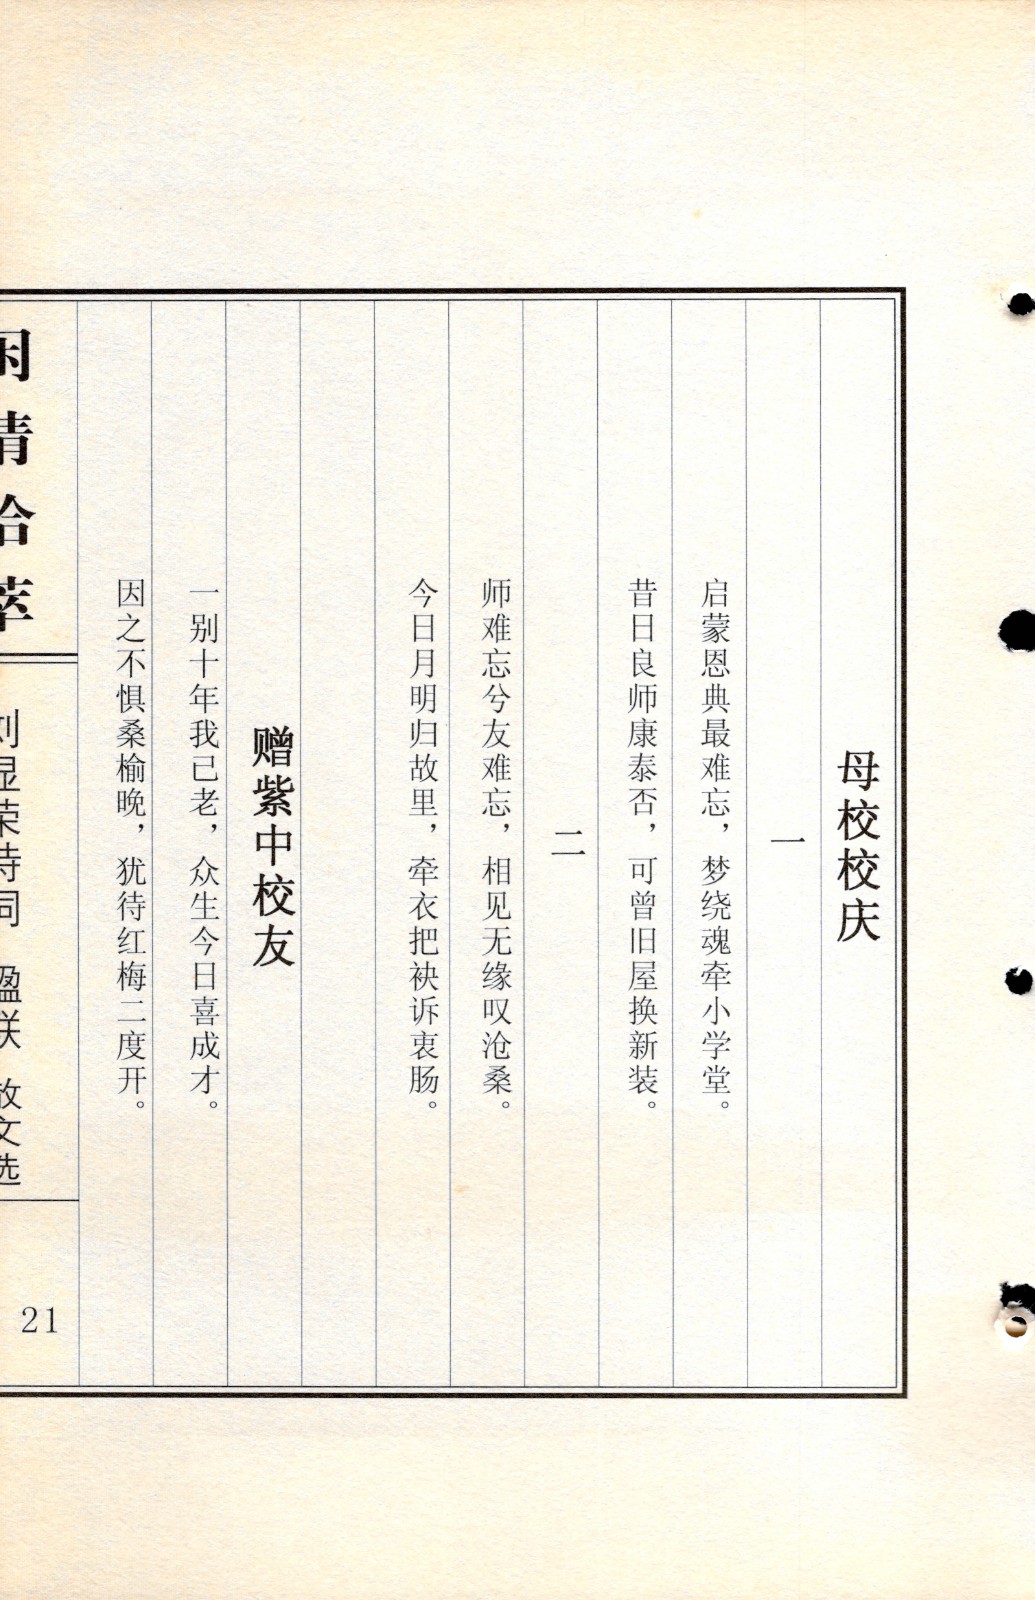 母校校庆
一
启蒙恩典最难忘，梦绕魂牵小学堂。
昔日良师康泰否，可曾旧屋换新装。
二
师难忘兮友难忘，相见无缘叹沧桑。
今日月明归故里，牵衣把袂诉衷肠。
赠紫中校友
一别十年我已老，众生今日喜成才。
因之不惧桑榆晚，犹待红梅二度开。
情拾萃
刘显荣诗词 楹联 散文选
21